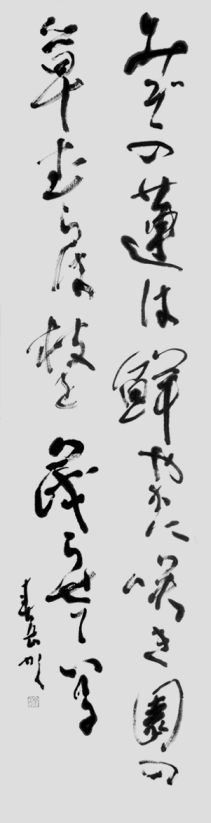 みぞの蓮は鮮やかに咲き園の
草むらは枝を茂らせている